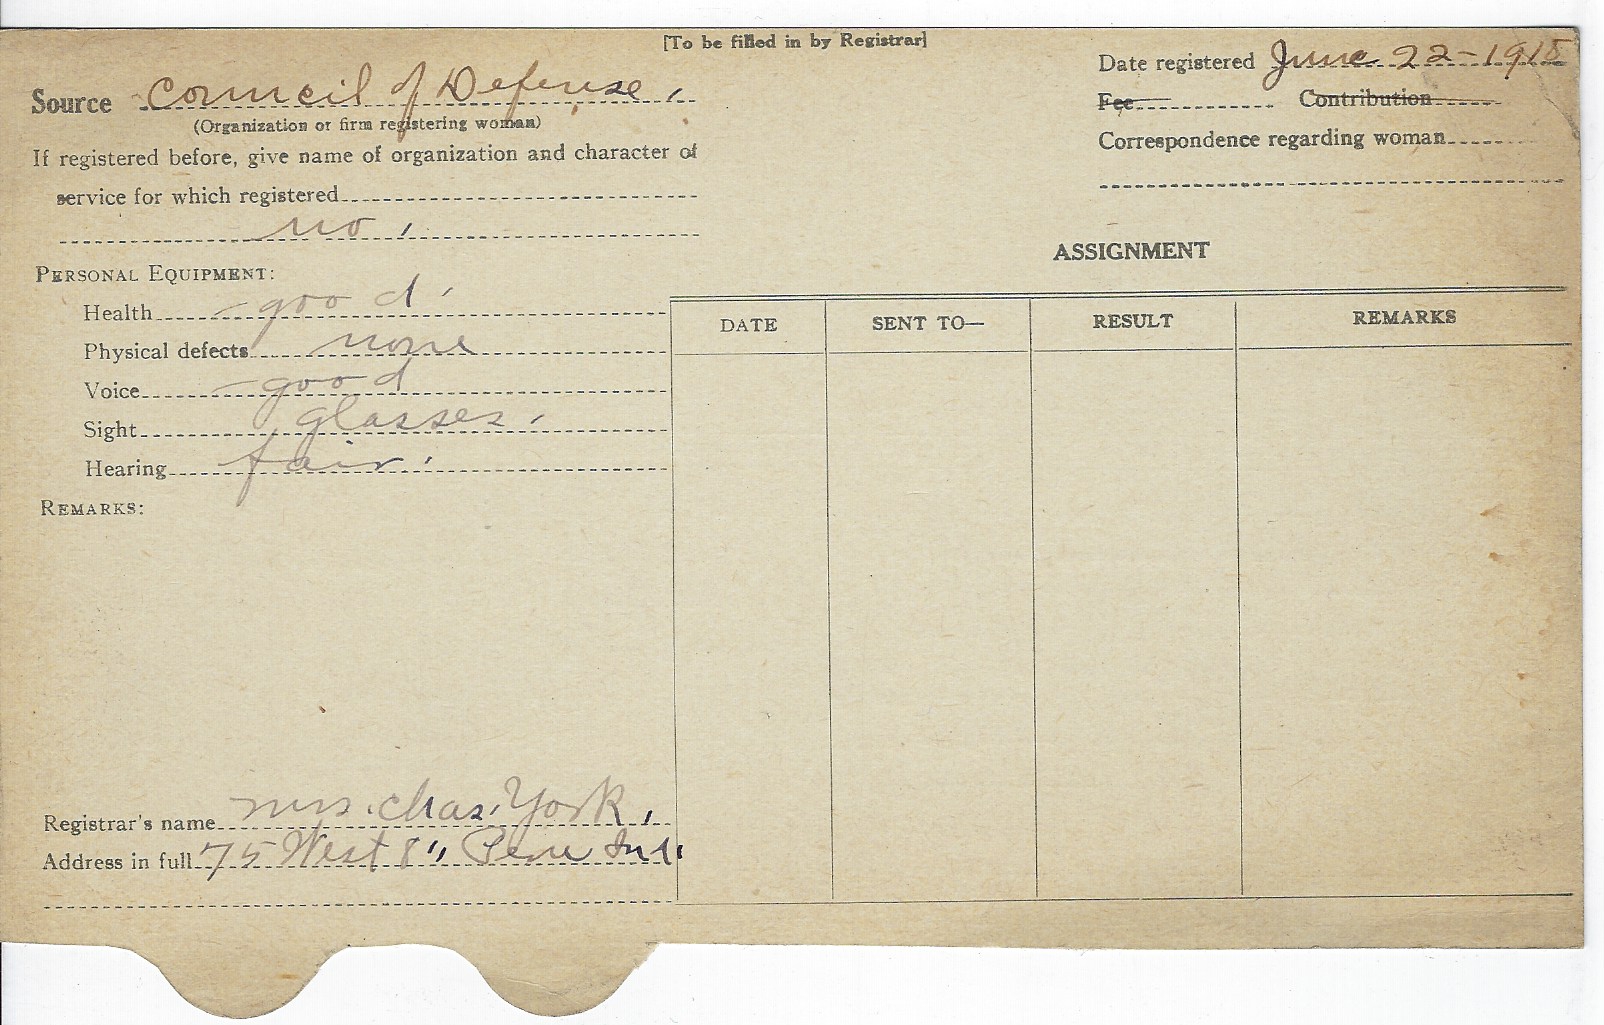 [To be filled in by Registrar]
Date registered June 22-1918
Source Council of Defense.
(Organization or firm registering woman)
Fee Contribution
If registered before, give name of organization and character of
Correspondence regarding woman
service for which registered
no.
ASSIGNMENT
PERSONAL EQUIPMENT:
Health good.
Physical defects none
Voice good
Sight glasses.
Hearing fair.
DATE SENT TO— RESULT REMARKS
REMARKS:
Registrar's name Mrs. Chas. York.
Address in full 75 West 8", Peru Ind.